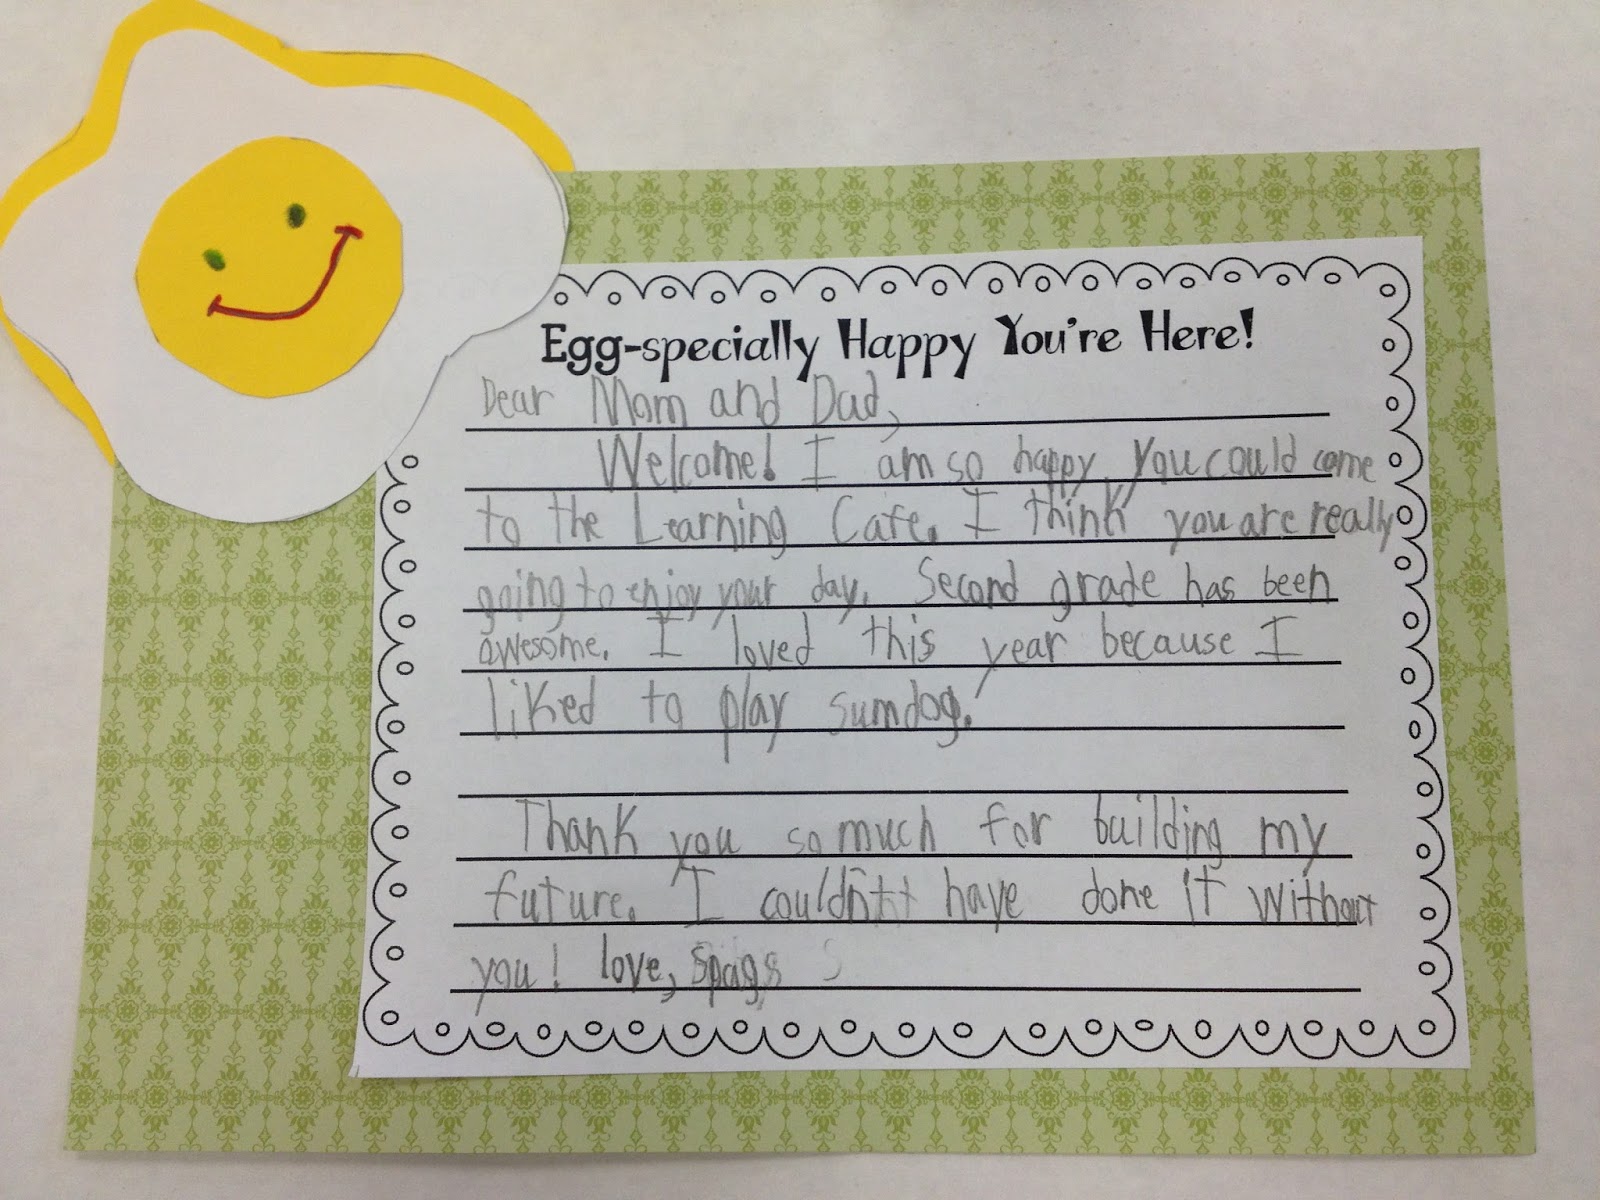 Egg-specially Happy You're Here!
Dear Mom and Dad,
Welcome! I am so happy you could come
to the Learning Cafe. I think you are really
going to enjoy your day. Second grade has been
awesome. I loved this year because I
liked to play sumdog.
Thank you so much for building my
future. I couldn't have done it without
you! love, Spags